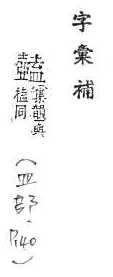 字彙補
集韻與
榼同
(皿部、P140)